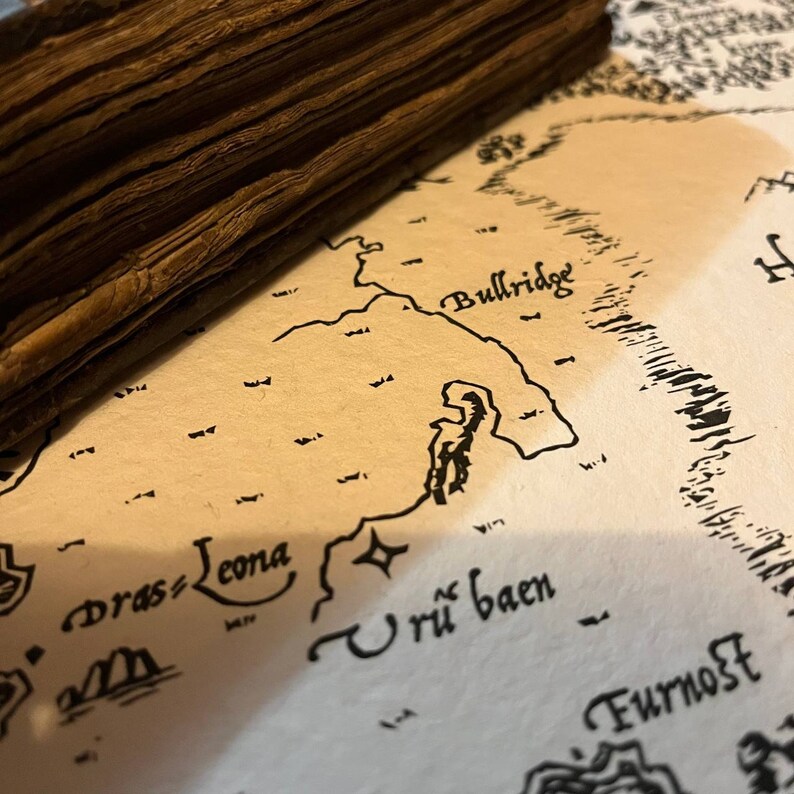 Bullridge
Dras-Leona
Urû'baen
Furnost